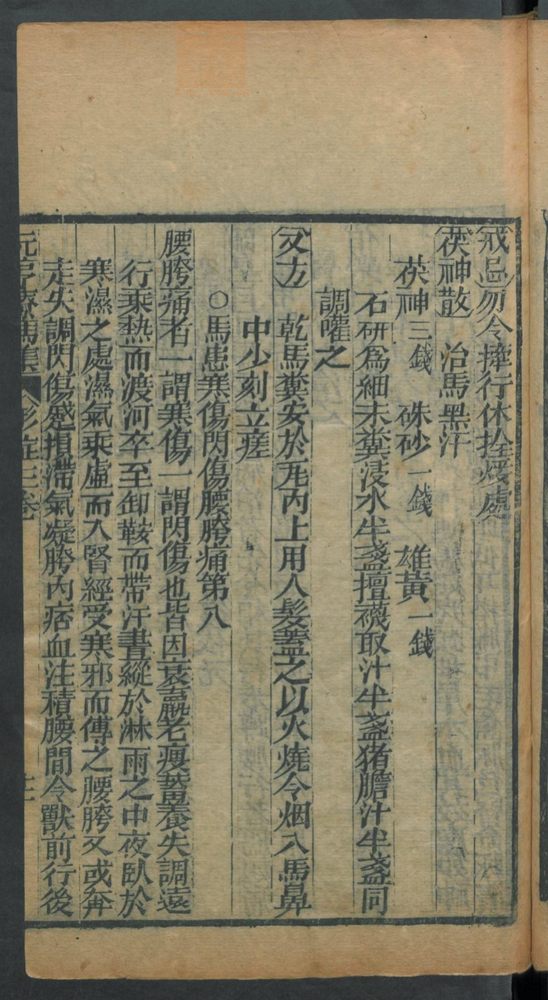 戒忌勿令摧行休拴煖處
茯神散　治馬黑汗
茯神三錢　硃砂一錢　雄黃一錢
石研為細末糞浸水半盞擅襪取汁半盞猪膽汁半盞同
調嚾之
又方　乾馬糞安於瓦內上用人髮蓋之以火燒令烟入馬鼻
中少刻立瘥
○馬患寒傷閃傷腰胯痛第八
腰胯痛者一謂寒傷一謂閃傷也皆因衰羸老瘦蓄養失調遠
行乘熱而渡河卒至卸鞍而帶汗書縱於淋雨之中夜臥於
寒濕之處濕氣乘虛而入腎經受寒邪而傳之腰胯又或奔
走失調閃傷蹙損滯氣凝胯內痞血注積腰間令獸前行後
元亨療馬集 三卷